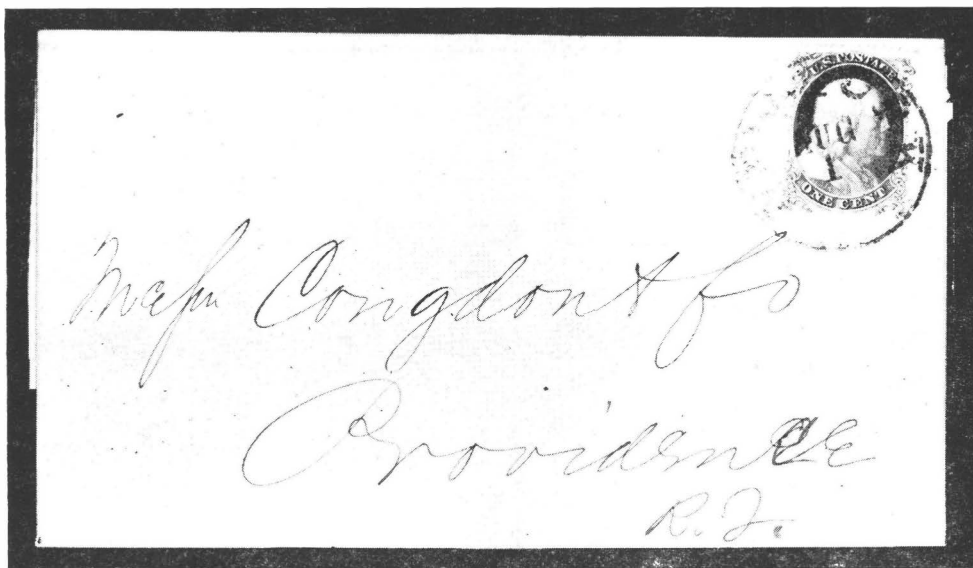 U.S. POSTAGE
AUG
1
ONE CENT
Congdon & Co
Providence
R.I.